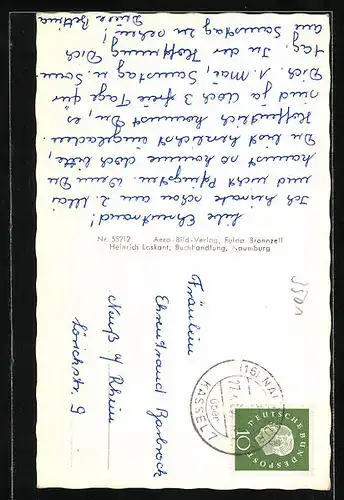 Liebe Ehrentraud!
Ich heirate schon am 2. Mai
und nicht Pfingsten. Wenn Du
kannst so komme doch bitte,
Du bist herzlichst eingeladen.
Hoffentlich kannst Du es,
sind ja doch 3 freie Tage für
Dich. 1. Mai, Samstag u. Sonn-
tag. In der Hoffnung Dich
am Samstag zu sehen!
Deine Bettina
Nr. 55212 Aero-Bild-Verlag, Fulda Bronnzell
Heinrich Laskant, Buchhandlung, Naumburg
Fräulein
Ehrentraud
Neuß a/Rhein
Lörickstr. 9
(16) NA
über
KASSEL 7
DEUTSCHE BUNDESPOST
10